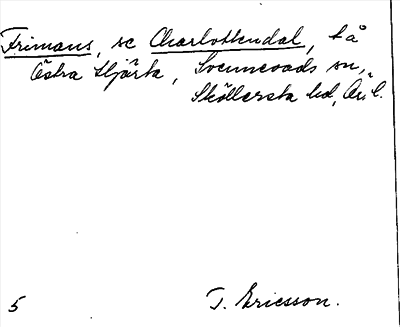 Frimans, se Charlottendal, t å
Östra Hjärta, Svennevads sn,
Sköllersta hd, Ör. l.
5 T. Ericsson.